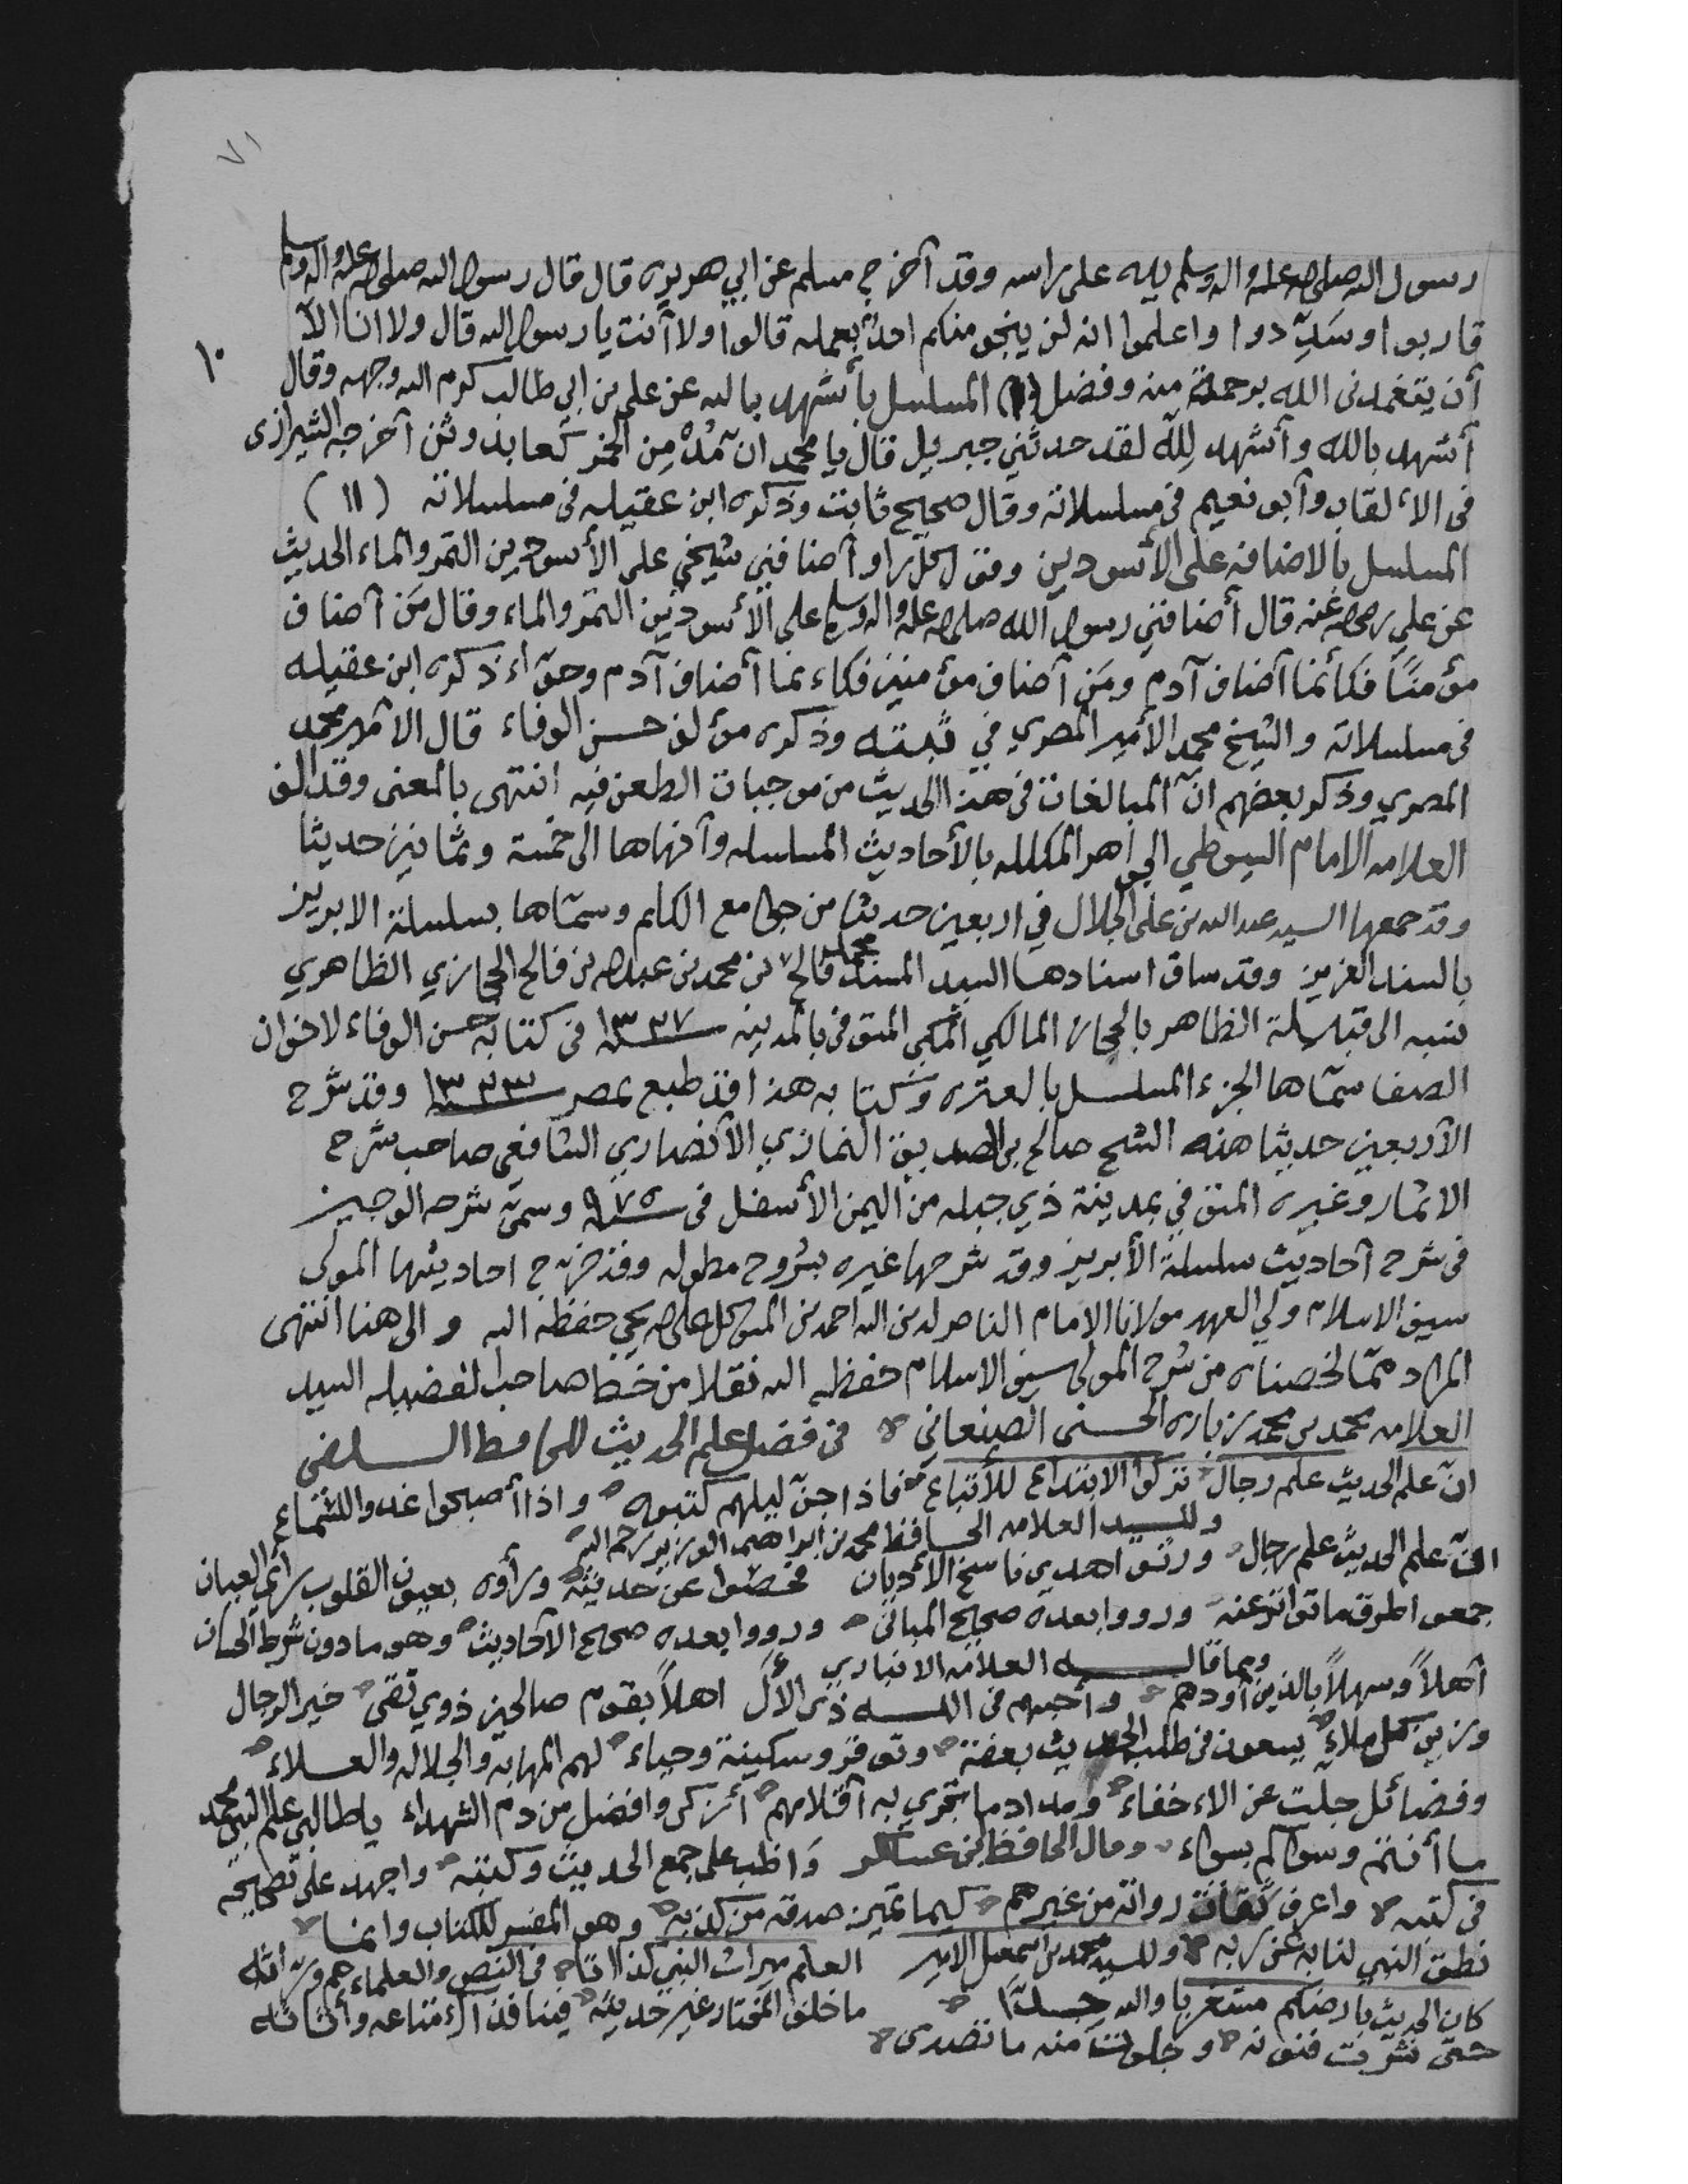 ٧١
رسول الله صلى الله عليه واله وسلم يده على راسه وقد أخرج مسلم عن ابي هريره قال قال رسول الله صلى الله عليه واله وسلم
قاربوا وسَدِّدوا واعلموا انه لن ينجو منكم احدٌ بعمله قالوا ولا أنت يا رسول الله قال ولا انا الّا
١٠
أن يتغمدنى الله برحمة منه وفضل (١) المسلسل بأشهد بالله عن علي بن ابي طالب كرم الله وجهه وقال
أشهد بالله وأشهد لِلّه لقد حدثني جبريل قال يا محمد ان مُدْمِن الخمر كعابد وثن أخرجه الشيرازى
فى الألقاب وأبو نعيم فى مسلسلاته وقال صحيح ثابت وذكره ابن عقيله فى مسلسلاته (١١)
المسلسل بالاضافه على الأسودين وقول كل راو أضافني شيخي على الأسودين التمر والماء الحديث
عن علي رضي الله عنه قال أضافني رسول الله صلى الله عليه واله وسلم على الأسودين التمر والماء وقال مَن أضاف
مؤمنًا فكأنما أضاف آدم ومَن أضاف مؤمنين فكاءنما أضاف آدم وحوّاء ذكره ابن عقيله
فى مسلسلاته والشيخ محمد الأمير المصري في ثبته وذكره مؤلف حسن الوفاء قال الامير محمد
المصري وذكر بعضهم انّ المبالغات فى هذا الحديث من موجبات الطعن فيه انتهى بالمعنى وقد الف
العلامه الامام السيوطي الجواهر المكلله بالأحاديث المسلسله وأنهاها الى خمسة وثمانين حديثا
وقد جمعها السيد عبد الله بن على الجلال في اربعين حديثا من جوامع الكلم وسمّاها بسلسلة الابريز
بالسند العزيز وقد ساق اسنادها السيد المسند فالح بن محمد بن عبدالله بن فالح الحجازي الظاهري
نسبه الى قبيلة الظاهر بالحجاز المالكي المكي المتوفى بالمدينه سنة ١٣٢٧ فى كتابه حسن الوفاء لاخوان
الصفا سمّاها الجزء المسلسل بالعتره وكتابه هذا قد طبع بمصر سنة ١٣٢٣ وقد شرح
الأربعين حديثا هذه الشيخ صالح بن الصديق النمازي الأنصاري الشافعي صاحب شرح
الاثمار وغيره المتوفي بمدينة ذي جبله من اليمن الأسفل فى سنة ٩٧٥ وسمّى شرحه الوجيز
فى شرح أحاديث سلسلة الأبريز وقد شرحها غيره بشروح مطوله وقد خرّج احاديثها المولى
سيف الاسلام ولي العهد مولانا الامام الناصر لدين الله احمد بن المتوكل على الله يحيى حفظه الله والى هنا انتهى
المراد ممّا لخصناه من شرح المولى سيف الاسلام حفظه الله نقلا من خط صاحب الفضيله السيد
العلامه محمد بن محمد زباره الحسنى الصنعاني فى فضل علم الحديث للحافظ السلفى
انّ علم الحديث علم رجال تركوا الابتداع للأتباع فاذا جنّ ليلهم كتبوه واذا أصبحوا غدوا للسّماع
وللسيد العلامه الحافظ محمد بن ابراهيم الوزير رحمه الله
انّ علم الحديث علم رجال ورثوا هدي ناسخ الأديان فحصوا عن حديثه ورأوه بعيون القلوب رأي العيان
جمعوا طرق ما تواتر عنه ورووا بعده صحيح المبانى ورووا بعده صحيح الأحاديث وهو ما دون شرط
ومما قاله العلامه الانباري
أهلاً وسهلاً بالذين أودهم وأحبهم فى الله ذى الألآ اهلاً بقوم صالحين ذوي تقى خير الرجال
وزين كل ملاءٍ يسعون فى طلب الحديث بعفة وتوقر وسكينة وحياء لهم المهابه والجلاله والعلاء
وفضائل جلت عن الاء خفاء ومداد ما تجري به أقلامهم أزكى وافضل من دم الشهداء يا طالبي علم النبي محمد
ما أنتم وسواكم بسواء وقال الحافظ ابن عساكر وَاظب على جمع الحديث وكتبه واجهد على تصحيحه
فى كتبه واعرف ثقات رواته من غيرهم كيما تميز صدقه من كذبه وهو المفسر للكتاب وانما
نطق النبي لنا به عن ربه وللسيد محمد بن اسمعيل الامير العلم ميراث النبي كذا اتا فى النص والعلماء هم ورّاثه
كان الحديث بارضكم مستغربا والله جدّا ما خلف المختار غير حديثه فينا فذاك متاعه وأثاثه
حتى نشرت فنونه وجلوت منه ما تصدى